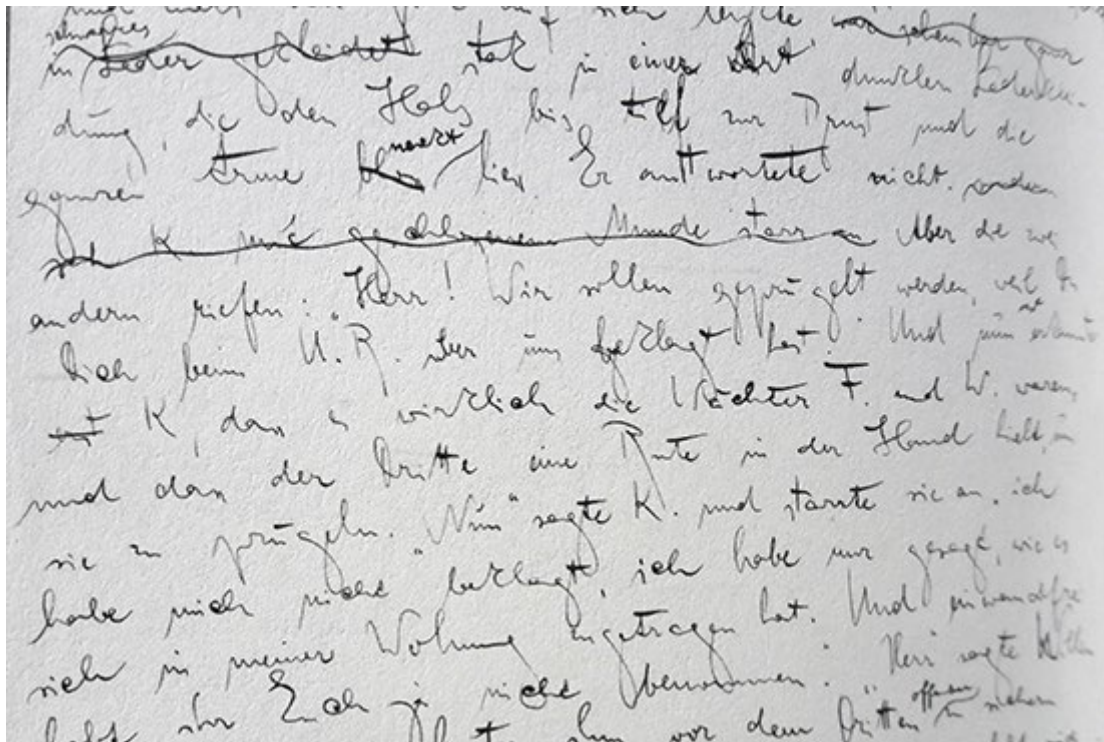 und auf sich lenkte war scheinbar ganz
in Leder gekleidet stak in einer Art dunklen Lederklei-
dung, die den Hals bis tief zur Brust und die
ganzen Arme nackt liess. Er antwortete nicht. sondern
sah K mit geschlossenem Munde starr an Aber die zwei
andern riefen: „Herr! Wir sollen geprügelt werden, weil Du
Dich beim U. R. über uns beklagt hast." Und nun erkannte
erst K, dass es wirklich die Wächter F. und W. waren,
und dass der Dritte eine Rute in der Hand hielt, um
sie zu prügeln. „Nun" sagte K. und starrte sie an, ich
habe mich nicht beklagt, ich habe nur gesagt, wie es
sich in meiner Wohnung zugetragen hat. Und einwandfrei
habt ihr Euch ja nicht benommen." „Herr sagte
ihm vor dem Dritten offenbar sichern